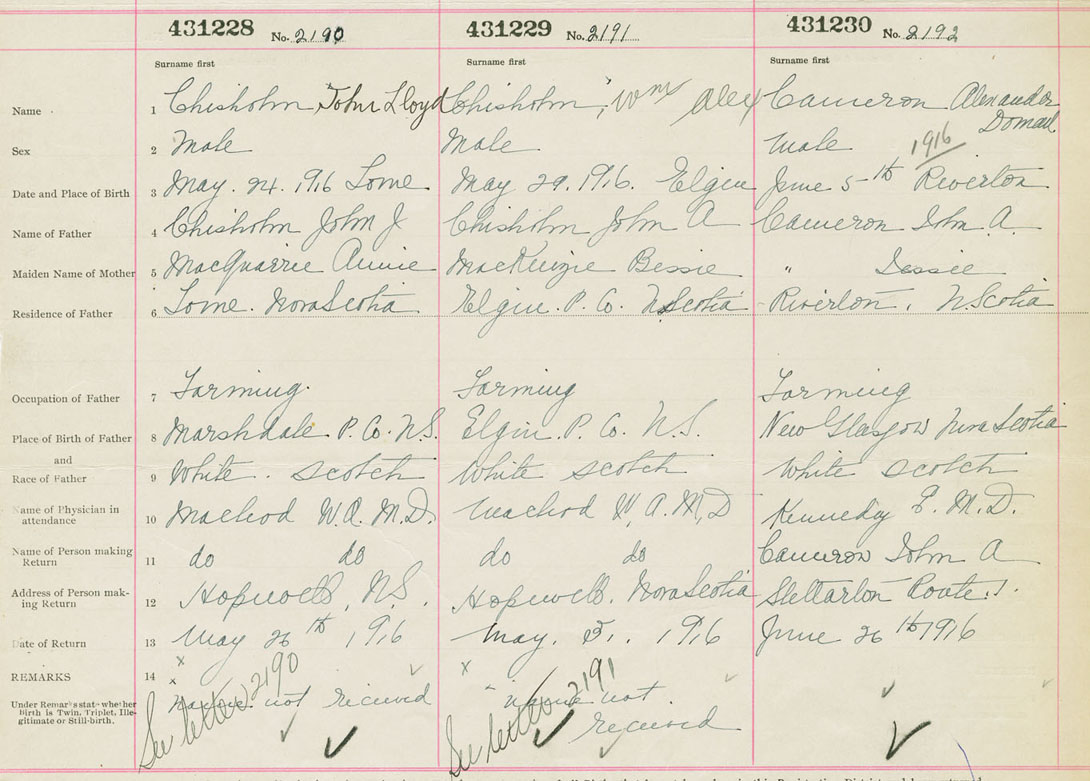 431228 No. 2190 431229 No. 2191 431230 No. 2192
Surname first Surname first Surname first
Name 1 Chisholm John Lloyd Chisholm, Wm Alex Cameron Alexander
Sex 2 Male Male Male 1916
Date and Place of Birth 3 May. 24. 1916 Lorne May 29. 1916. Elgin June 5th Riverton
Name of Father 4 Chisholm John J Chisholm John A Cameron John A.
Maiden Name of Mother 5 MacQuarrie Annie MacKenzie Bessie " Jessie
Residence of Father 6 Lorne. Nova Scotia Elgin. P. Co. N. Scotia Riverton, N. Scotia
Occupation of Father 7 Farming. Farming Farming
Place of Birth of Father 8 Marshdale P. Co. N.S. Elgin P. Co. N.S. New Glasgow Nova Scotia
and
Race of Father 9 White. Scotch White Scotch White Scotch
Name of Physician in
attendance 10 Macleod W.A. M.D. Macleod W, A. M, D Kennedy E. M.D.
Name of Person making
Return 11 do do do do Cameron John A
Address of Person mak-
ing Return 12 Hopwell, N.S. Hopwell. Nova Scotia Stellarton Route 1.
Date of Return 13 May 26th, 1916 May. 1916 June 26th 1916
REMARKS 14 x x x
Under Remarks stat whether
Birth is Twin, Triplet, Ille-
gitimate or Still-birth.
name not received name not
received
See letter 2190 See letter 2191